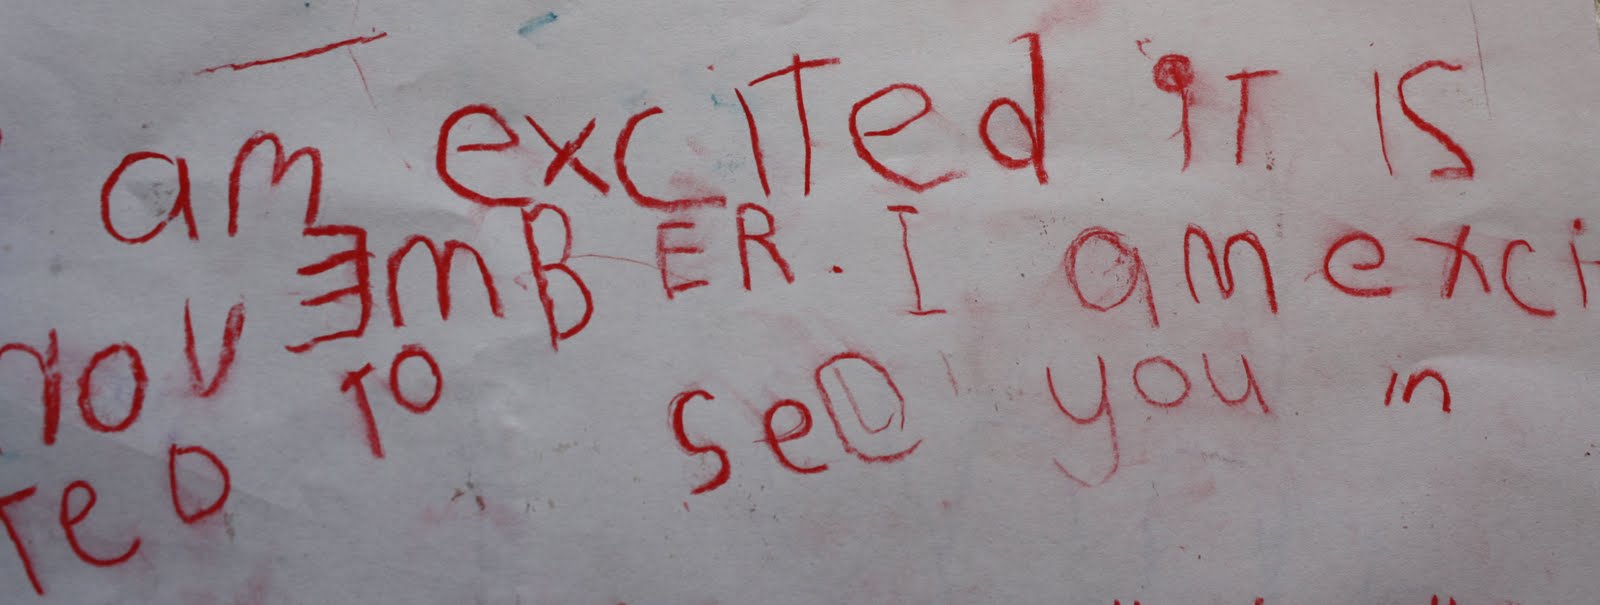 am excited it is
novEmBER. I am exci
TeD TO see you in